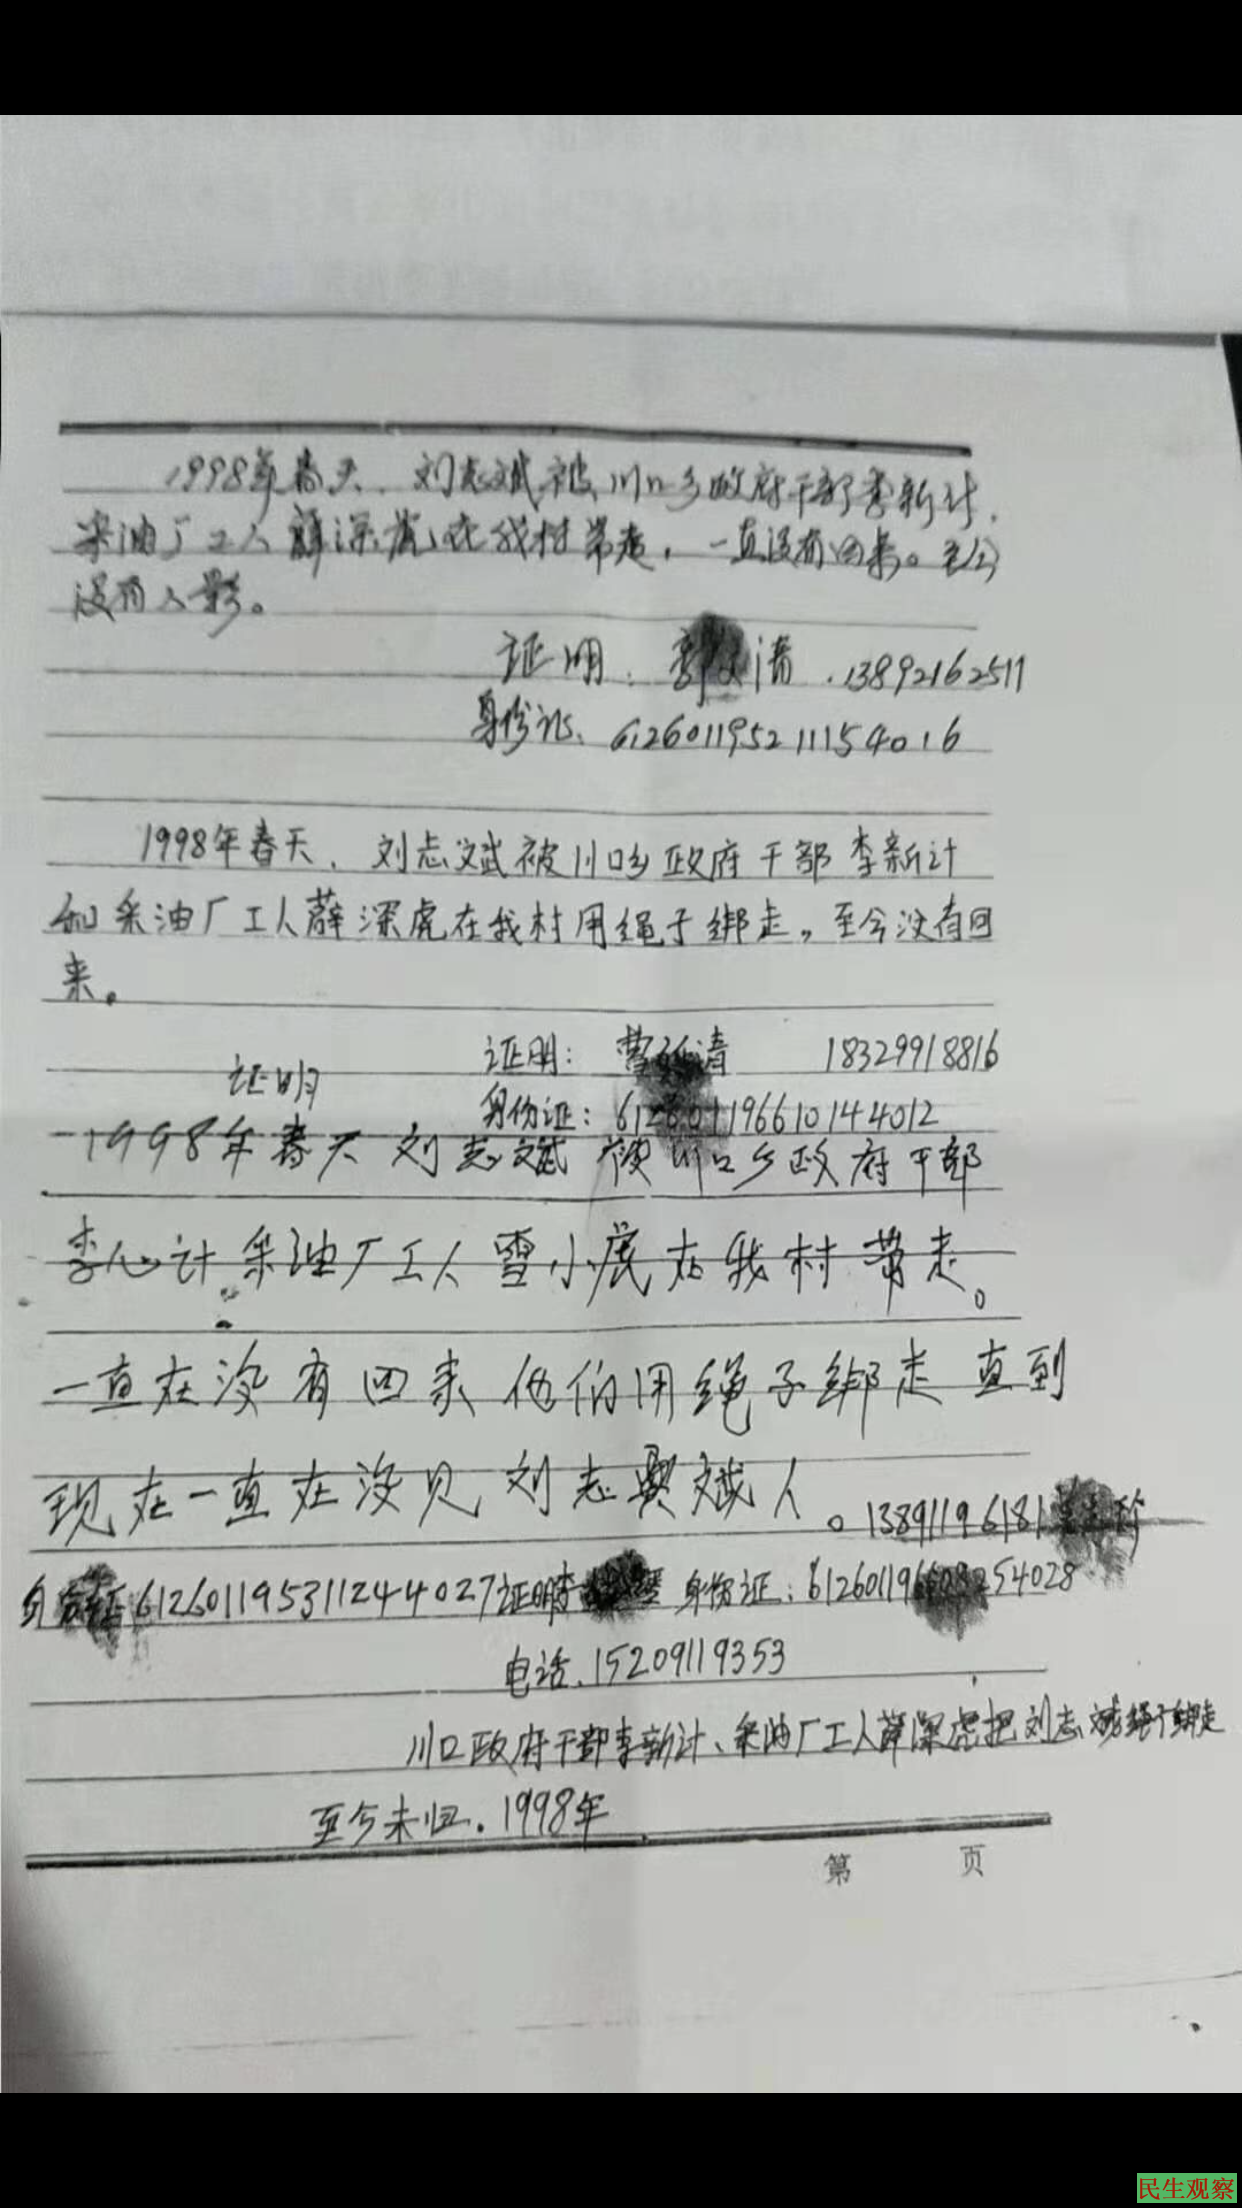 1998年春天、刘志斌被川口乡政府干部李新计、
采油厂工人薛深虎在我村带走，一直没有回来。至今
没有人影。
证明：郭 清 .13892162511
身份证、612601195211154016
1998年春天、刘志斌被川口乡政府干部李新计
和采油厂工人薛深虎在我村用绳子绑走，至今没有回
来。
证明：曹 清 18329918816
证明
身份证：612601196610144012
1998年春天刘志斌被川口乡政府干部
李心计采油厂工人雪小虎在我村带走。
一直在没有回来他们用绳子绑走直到
现在一直在没见刘志斌人。13891196181
身份证612601195311244027证明李 身份证：6126011966 254028
电话.15209119353
川口政府干部李新计、采油厂工人薛深虎把刘志斌绳子绑走
至今未归.1998年
第 页
民生观察